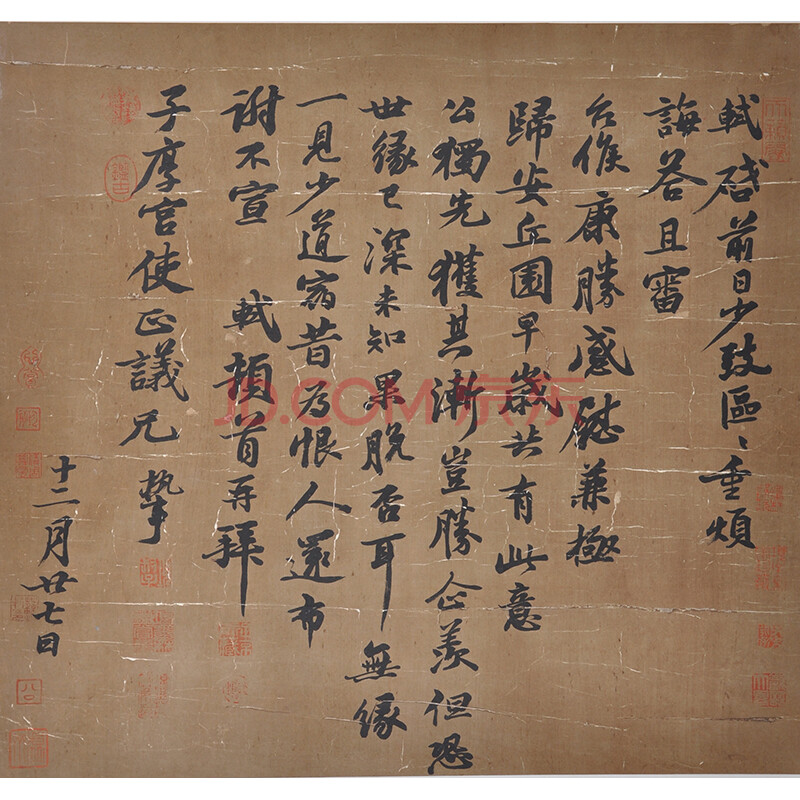 軾啓前日少致區〻重煩
誨荅且審
台候康勝感慰兼極
歸安丘園早歲共有此意
公獨先獲其漸豈勝企羨但恐
世緣已深未知果脫否耳無緣
一見少道宿昔為恨人還布
謝不宣 軾頓首再拜
子厚宮使正議兄執事
十二月廿七日
JD.COM 京东